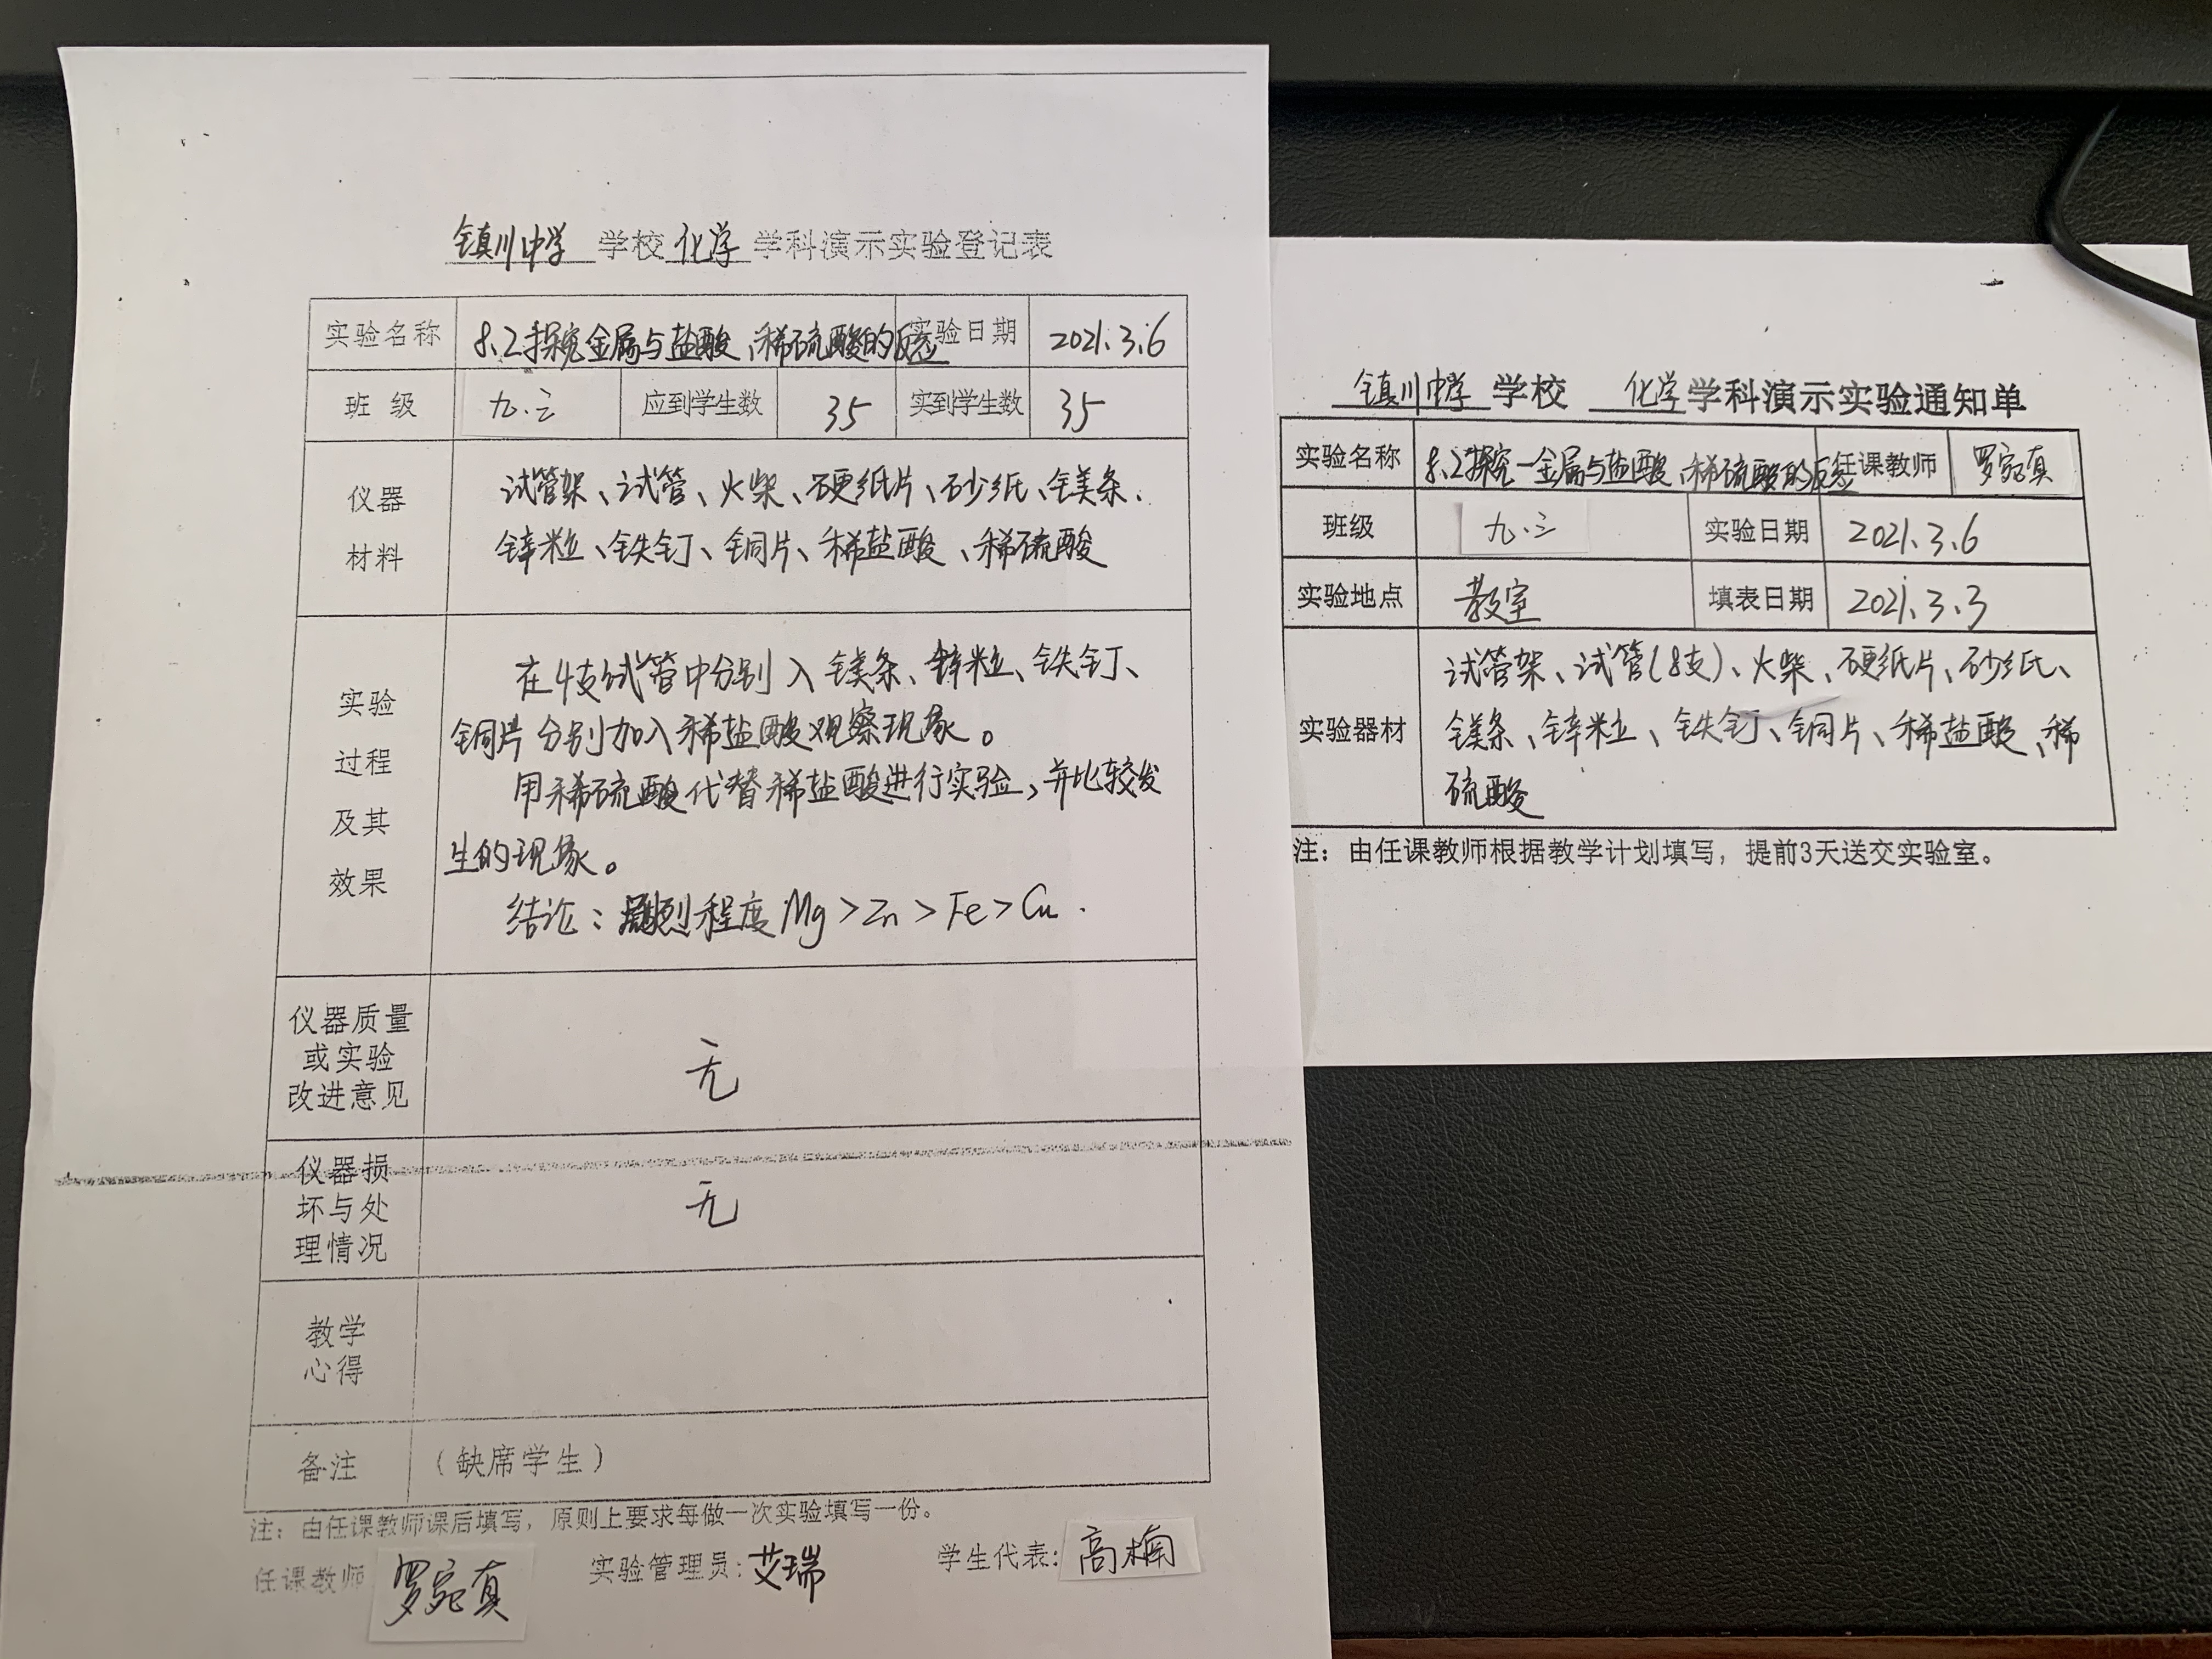 镇川中学 学校 化学 学科演示实验登记表
实验名称 8.2探究金属与盐酸、稀硫酸的反应 实验日期 2021.3.6
班级 九.三 应到学生数 35 实到学生数 35
仪器
材料
试管架、试管、火柴、硬纸片、砂纸、镁条、
锌粒、铁钉、铜片、稀盐酸、稀硫酸
实验
过程
及其
效果
在4支试管中分别入镁条、锌粒、铁钉、
铜片分别加入稀盐酸观察现象。
用稀硫酸代替稀盐酸进行实验,并比较发
生的现象。
结论:剧烈程度Mg>Zn>Fe>Cu.
仪器质量
或实验
改进意见
无
仪器损
坏与处
理情况
无
教学
心得
备注 (缺席学生)
注:由任课教师课后填写,原则上要求每做一次实验填写一份。
任课教师 罗宛真 实验管理员:艾瑞 学生代表:高楠
镇川中学 学校 化学 学科演示实验通知单
实验名称 8.2探究一金属与盐酸、稀硫酸的反应 任课教师 罗宛真
班级 九.三 实验日期 2021.3.6
实验地点 教室 填表日期 2021.3.3
实验器材
试管架、试管(8支)、火柴、硬纸片、砂纸、
镁条、锌粒、铁钉、铜片、稀盐酸、稀
硫酸
注:由任课教师根据教学计划填写,提前3天送交实验室。